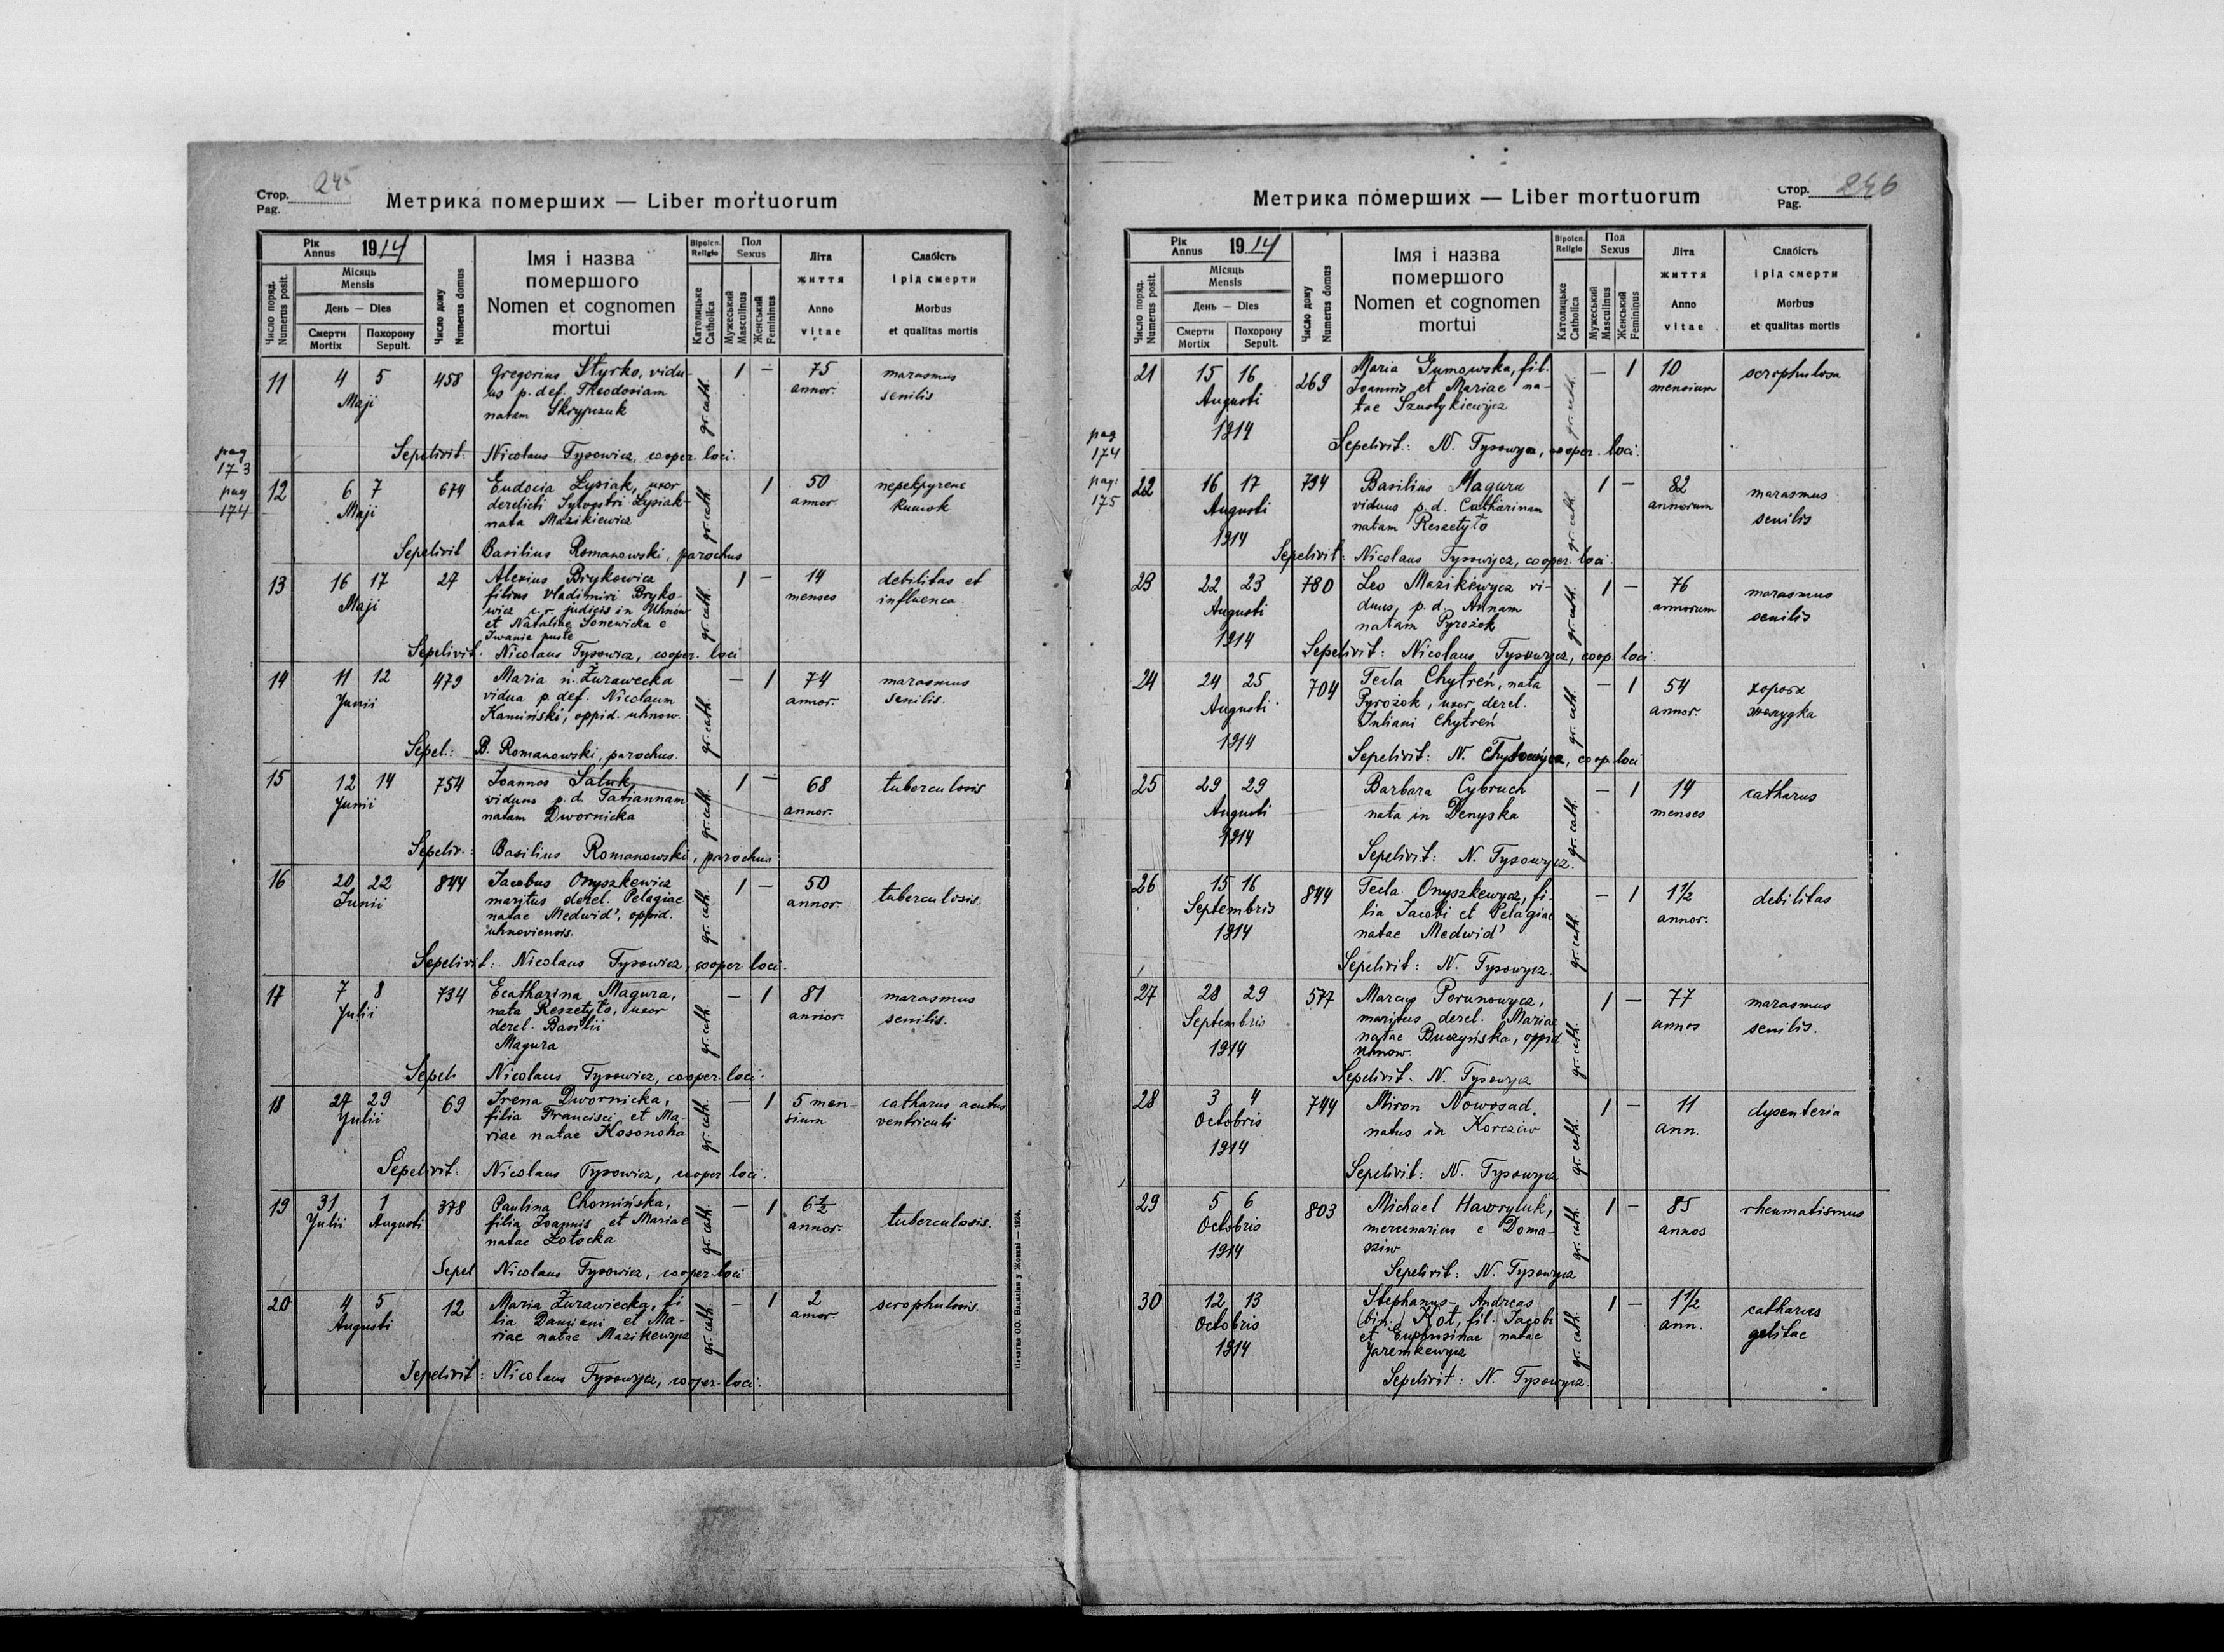 Стор. 245
Pag.
Метрика померших — Liber mortuorum
Рік Annus 1914
Число поряд. Numerus posit.
Місяць Mensis
День — Dies
Смерти Mortix
Похорону Sepult.
Число дому Numerus domus
Імя і назва
помершого
Nomen et cognomen
mortui
Віроісп. Religio
Католицьке Catholica
Пол Sexus
Мужеський Masculinus
Женський Femininus
Літа
життя
Anno
vitae
Слабість
і рід смерти
Morbus
et qualitas mortis
11 4 5 458 Gregorius Styrko, vidu- gr. cath. 1 — 75 marasmus
Maji us p. def. Theodosiam annor. senilis
natam Skrypczuk
Sepelivit: Nicolaus Tysowicz, cooper. loci.
pag 173
pag 174
12 6 7 674 Eudocia Łysiak, uxor gr. cath. 1 50
Maji derelicti Sylvestri Łysiak annor.
nata Mazikiewicz
Sepelivit Basilius Romanowski, parochus
13 16 17 27 Alexius Brykowicz gr. cath. 1 — 14 debilitas et
Maji filius Vladimiri Bryko- menses influenca
wicz c. r. judicis in Uhnów
et Nataliae Sonewicka e
Iwanie puste
Sepelivit. Nicolaus Tysowicz, cooper. loci
14 11 12 479 Maria n. Żurawecka gr. cath. — 1 74 marasmus
Junii vidua p. def. Nicolaum annor. senilis.
Kamiński, oppid. uhnow.
Sepel.: B. Romanowski, parochus.
15 12 14 754 Joannes Saluk gr. cath. 1 — 68 tuberculosis
Junii viduus p. d. Tatiannam annor.
natam Dwornicka
Sepeliv.: Basilius Romanowski, parochus
16 20 22 844 Jacobus Onyszkewicz gr. cath. 1 — 50 tuberculosis.
Junii maritus derel. Pelagiae annor.
natae Medwid', oppid.
uhnoviensis.
Sepelivit: Nicolaus Tysowicz, cooper loci.
17 7 8 734 Ecatharina Magura, gr. cath. — 1 81 marasmus
Julii nata Reszetyło, uxor annor. senilis.
derel. Basilii
Magura
Sepel. Nicolaus Tysowicz, cooper. loci.
18 27 29 69 Irena Dwornicka, gr. cath. — 1 5 men- catharus acutus
Julii filia Francisci et Ma- sium ventriculi
riae natae Kosonoha
Sepelivit. Nicolaus Tysowicz, cooper loci.
19 31 1 378 Paulina Chomińska, gr. cath. — 1 6½ tuberculosis.
Julii Augusti filia Joannis et Mariae annor.
natae Zołocka
Sepel Nicolaus Tysowicz, cooper. loci
20 4 5 12 Maria Żurawiecka, fi gr. cath. — 1 2 scrophulosis.
Augusti lia Damiani et Ma- annor.
riae natae Mazikewycz
Sepelivit: Nicolaus Tysowycz, cooper. loci.
Печатня ОО. Василіян у Жовкві — 1924.
Метрика померших — Liber mortuorum
Стор. 246
Pag.
Рік Annus 1914
Число поряд. Numerus posit.
Місяць Mensis
День — Dies
Смерти Mortix
Похорону Sepult.
Число дому Numerus domus
Імя і назва
помершого
Nomen et cognomen
mortui
Віроісп. Religio
Католицьке Catholica
Пол Sexus
Мужеський Masculinus
Женський Femininus
Літа
життя
Anno
vitae
Слабість
і рід смерти
Morbus
et qualitas mortis
21 15 16 269 Maria Gumowska, fil. gr. cath. — 1 10 scrophulosa
Augusti Joannis et Mariae na- mensium
1914 tae Szustykiewycz
Sepelivit: N. Tysowycz, cooper. loci.
pag 174
pag: 175
22 16 17 734 Basilius Magura gr. cath. 1 — 82 marasmus
Augusti viduus p. d. Catharinam annorum senilis
1914 natam Reszetyło
Sepelivit: Nicolaus Tysowycz, cooper. loci.
23 22 23 780 Leo Mazikewycz vi- gr. cath. 1 — 76 marasmus
Augusti duus, p. d. Annam annorum senilis
1914 natam Pyrożok
Sepelivit: Nicolaus Tysowycz, coop. loci.
24 24 25 704 Tecla Chytreń, nata gr. cath. — 1 54 хороба
Augusti Pyrożok, uxor derel. annor. жолудка
1914 Juliani Chytreń
Sepelivit: N. Tysowycz, coop. loci
25 29 29 Barbara Cybruch gr. cath. — 1 14 catharus
Augusti nata in Denyska menses
1914
Sepelivit: N. Tysowycz.
26 15 16 844 Tecla Onyszkewycz, fi- gr. cath. — 1 1½ debilitas
Septembris lia Jacobi et Pelagiae annor.
1914 natae Medwid'
Sepelivit: N. Tysowycz.
27 28 29 577 Marcus Porunowycz, gr. cath. 1 — 77 marasmus
Septembris maritus derel. Mariae annos senilis.
1914 natae Buczyńska, oppid.
uhnow.
Sepelivit. N. Tysowycz
28 3 4 744 Miron Nowosad, gr. cath. 1 — 11 dysenteria
Octobris natus in Korcziw ann.
1914
Sepelivit: N. Tysowycz
29 5 6 803 Michael Hawryluk, gr. cath. 1 — 85 rheumatismus
Octobris mercenarius e Doma- annos
1914 sziw
Sepelivit: N. Tysowycz
30 12 13 Stephanus-Andreas gr. cath. 1 — 1½ catharus
Octobris (bin.) Kot, fil. Jacobi ann.
1914 et Euphrosinae natae
Jaremkewycz
Sepelivit: N. Tysowycz.